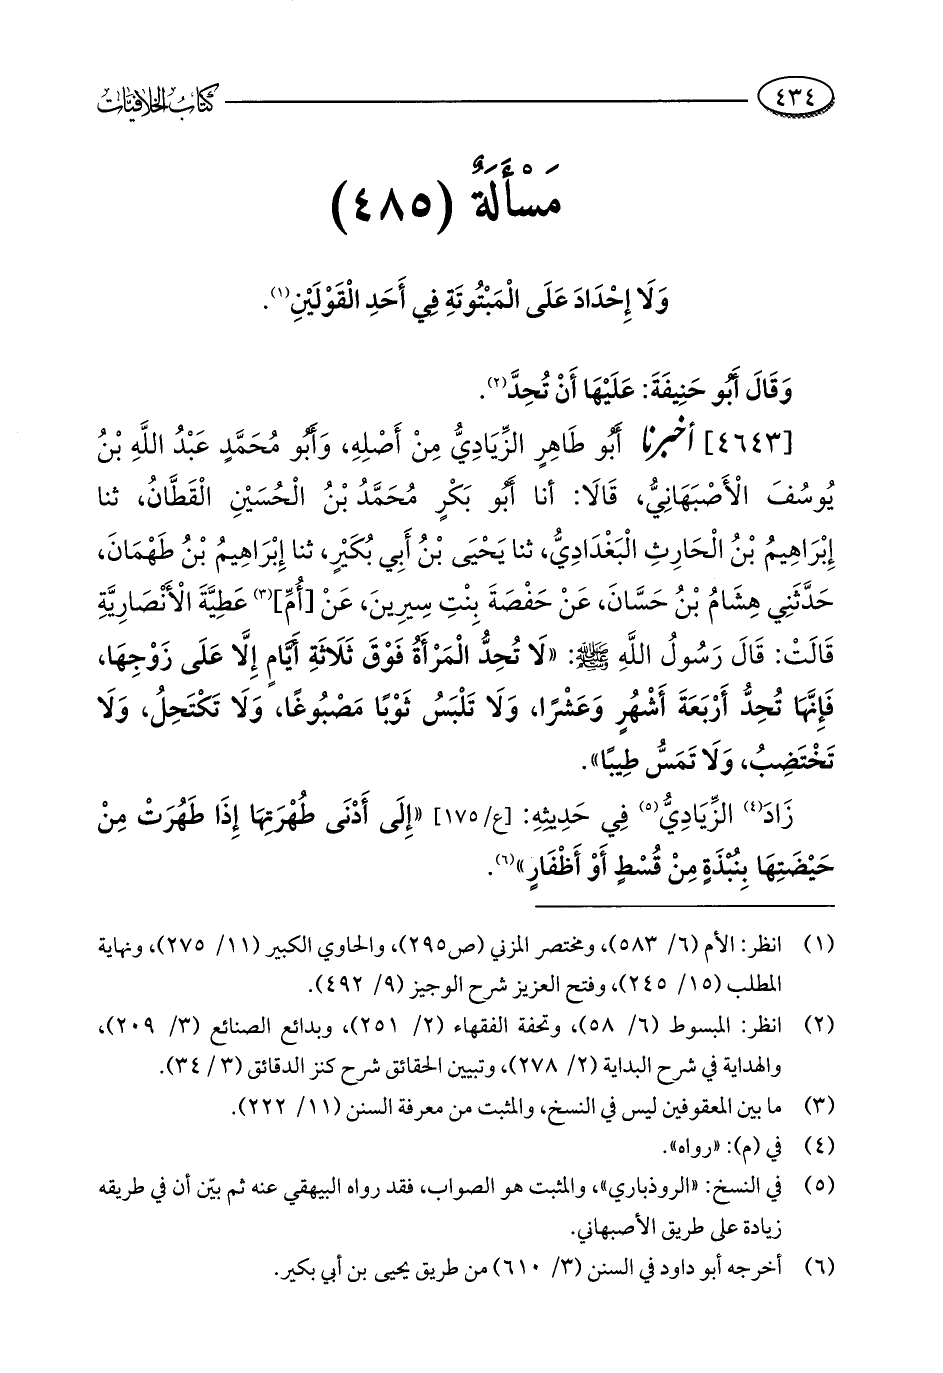 ٤٣٤ كتاب الخلافيات
مَسْأَلَةٌ (٤٨٥)
وَلَا إِحْدَادَ عَلَى الْمَبْتُوتَةِ فِي أَحَدِ الْقَوْلَيْنِ(١).
وَقَالَ أَبُو حَنِيفَةَ: عَلَيْهَا أَنْ تُحِدَّ(٢).
[٤٦٤٣] أخبرنا أَبُو طَاهِرٍ الزِّيَادِيُّ مِنْ أَصْلِهِ، وَأَبُو مُحَمَّدٍ عَبْدُ اللَّهِ بْنُ
يُوسُفَ الْأَصْبَهَانِيُّ، قَالَا: أنا أَبُو بَكْرٍ مُحَمَّدُ بْنُ الْحُسَيْنِ الْقَطَّانُ، ثنا
إِبْرَاهِيمُ بْنُ الْحَارِثِ الْبَغْدَادِيُّ، ثنا يَحْيَى بْنُ أَبِي بُكَيْرٍ، ثنا إِبْرَاهِيمُ بْنُ طَهْمَانَ،
حَدَّثَنِي هِشَامُ بْنُ حَسَّانَ، عَنْ حَفْصَةَ بِنْتِ سِيرِينَ، عَنْ [أُمِّ](٣) عَطِيَّةَ الْأَنْصَارِيَّةِ
قَالَتْ: قَالَ رَسُولُ اللَّهِ ﷺ: «لَا تُحِدُّ الْمَرْأَةُ فَوْقَ ثَلَاثَةِ أَيَّامٍ إِلَّا عَلَى زَوْجِهَا،
فَإِنَّهَا تُحِدُّ أَرْبَعَةَ أَشْهُرٍ وَعَشْرًا، وَلَا تَلْبَسُ ثَوْبًا مَصْبُوغًا، وَلَا تَكْتَحِلُ، وَلَا
تَخْتَضِبُ، وَلَا تَمَسُّ طِيبًا».
زَادَ(٤) الزِّيَادِيُّ(٥) فِي حَدِيثِهِ: [ع/١٧٥] «إِلَى أَدْنَى طُهْرَتِهَا إِذَا طَهُرَتْ مِنْ
حَيْضَتِهَا بِنُبْذَةٍ مِنْ قُسْطٍ أَوْ أَظْفَارٍ»(٦).
(١) انظر: الأم (٦/ ٥٨٣)، ومختصر المزني (ص٢٩٥)، والحاوي الكبير (١١/ ٢٧٥)، ونهاية
المطلب (١٥/ ٢٤٥)، وفتح العزيز شرح الوجيز (٩/ ٤٩٢).
(٢) انظر: المبسوط (٦/ ٥٨)، وتحفة الفقهاء (٢/ ٢٥١)، وبدائع الصنائع (٣/ ٢٠٩)،
والهداية في شرح البداية (٢/ ٢٧٨)، وتبيين الحقائق شرح كنز الدقائق (٣/ ٣٤).
(٣) ما بين المعقوفين ليس في النسخ، والمثبت من معرفة السنن (١١/ ٢٢٢).
(٤) في (م): «رواه».
(٥) في النسخ: «الروذباري»، والمثبت هو الصواب، فقد رواه البيهقي عنه ثم بيّن أن في طريقه
زيادة على طريق الأصبهاني.
(٦) أخرجه أبو داود في السنن (٣/ ٦١٠) من طريق يحيى بن أبي بكير.